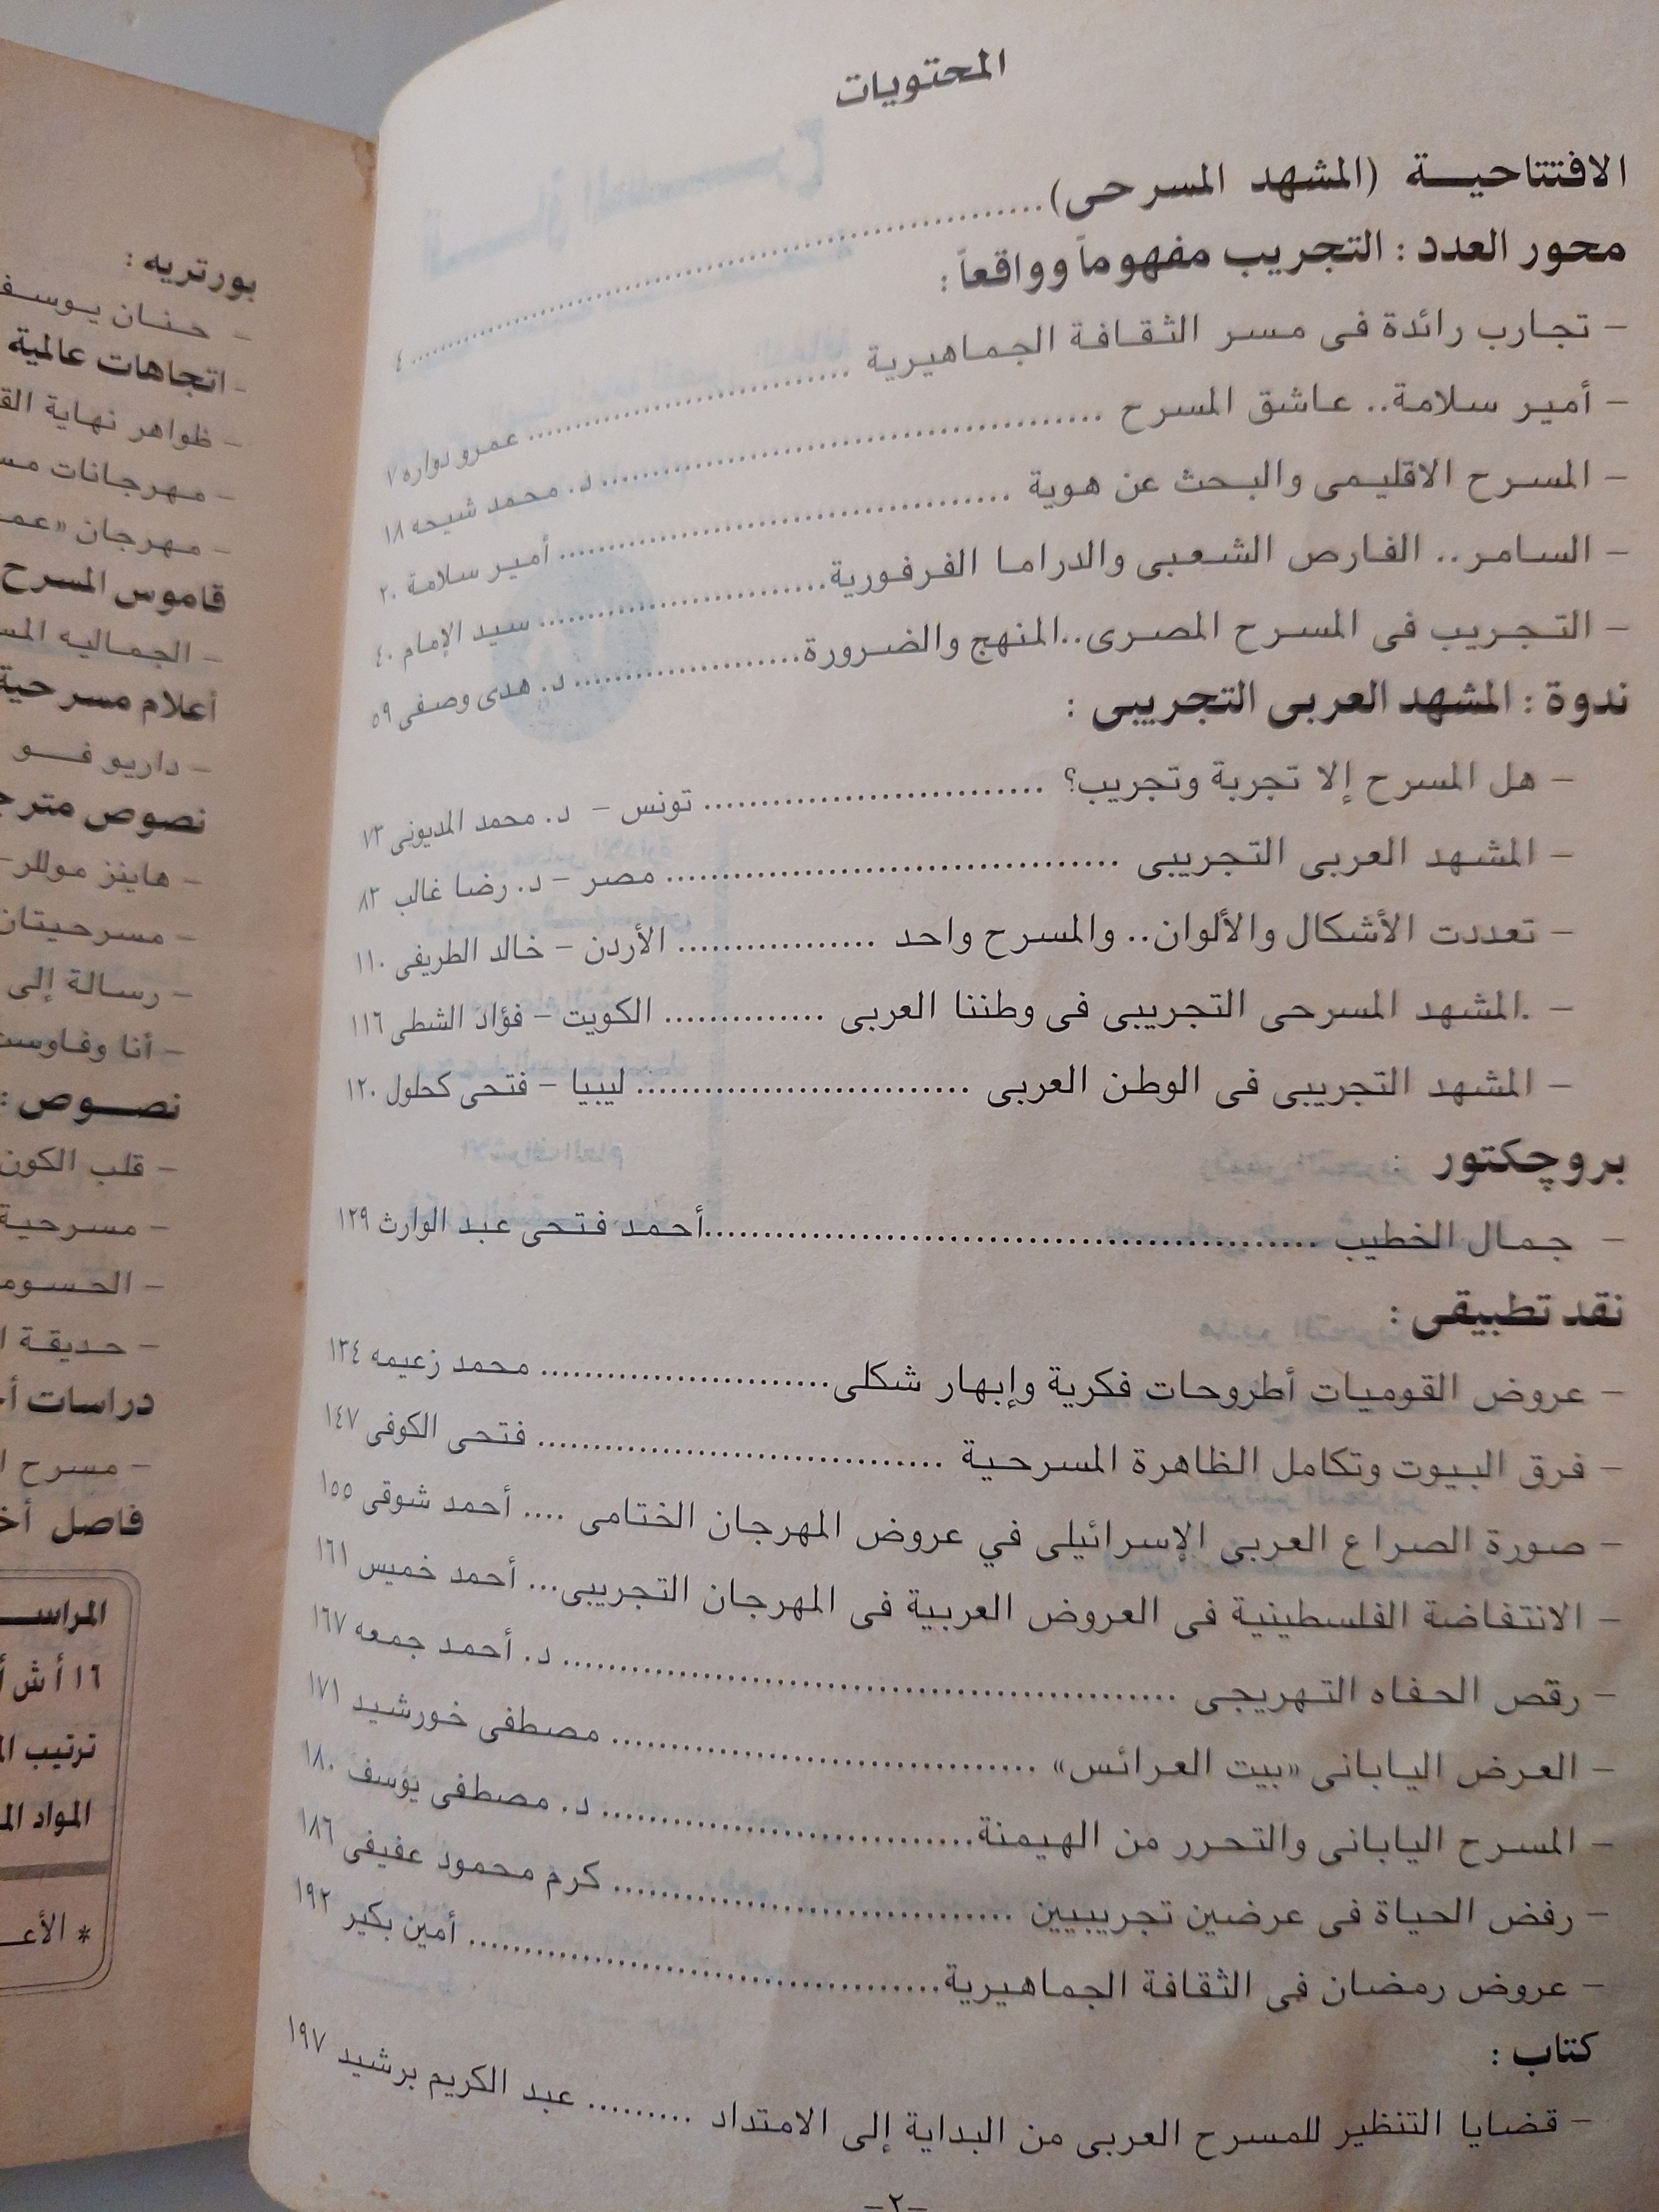 المحتويات
الافتتاحيـــة (المشهد المسرحى)........................ ٤
محور العدد : التجريب مفهوماً وواقعاً :
– تجارب رائدة فى مسر الثقافة الجماهيرية ........................ عمرو دواره ٧
– أمير سلامة.. عاشق المسرح ........................ د. محمد شيحه ١٨
– المسرح الاقليمى والبحث عن هوية ........................ أمير سلامة ٢٠
– السامر.. الفارص الشعبى والدراما الفرفورية........................ سيد الإمام ٤٠
– التجريب فى المسرح المصرى..المنهج والضرورة........................ د. هدى وصفى ٥٩
ندوة : المشهد العربى التجريبى :
– هل المسرح إلا تجربة وتجريب؟ ........................ تونس – د. محمد المديونى ٧٣
– المشهد العربى التجريبى ........................ مصر – د. رضا غالب ٨٣
– تعددت الأشكال والألوان.. والمسرح واحد ................. الأردن – خالد الطريفى ١١٠
– .المشهد المسرحى التجريبى فى وطننا العربى .............. الكويت – فؤاد الشطى ١١٦
– المشهد التجريبى فى الوطن العربى ........................ ليبيا – فتحى كحلول ١٢٠
بروچكتور :
– جمال الخطيب ........................أحمد فتحى عبد الوارث ١٢٩
نقد تطبيقى :
– عروض القوميات أطروحات فكرية وإبهار شكلى........................ محمد زعيمه ١٣٤
– فرق البيوت وتكامل الظاهرة المسرحية ........................ فتحى الكوفى ١٤٧
– صورة الصراع العربى الإسرائيلى في عروض المهرجان الختامى .... أحمد شوقى ١٥٥
– الانتفاضة الفلسطينية فى العروض العربية فى المهرجان التجريبى... أحمد خميس ١٦١
– رقص الحفاه التهريجى ........................ د. أحمد جمعه ١٦٧
– العرض اليابانى «بيت العرائس» ........................ مصطفى خورشيد ١٧١
– المسرح اليابانى والتحرر من الهيمنة........................ د. مصطفى يوسف ١٨٠
– رفض الحياة فى عرضين تجريبيين ........................ كرم محمود عفيفى ١٨٦
– عروض رمضان فى الثقافة الجماهيرية........................ أمين بكير ١٩٢
كتاب :
– قضايا التنظير للمسرح العربى من البداية إلى الامتداد ......... عبد الكريم برشيد ١٩٧
–٢–
بورتريه :
– حنان يوسف
– اتجاهات عالمية
– ظواهر نهاية
– مهرجانات
– مهرجان
قاموس المسرح
– الجماليه
أعلام مسرحية
– داريو فـــو
نصوص
– هاينز موللر–
– مسرحيتان
– رسالة إلى
– أنا وفاوست
نصـــوص :
– قلب الكون
– مسرحية
–
– حديقة
دراسات
– مسرح
فاصل
١٦ أ ش
ترتيب
المواد
*